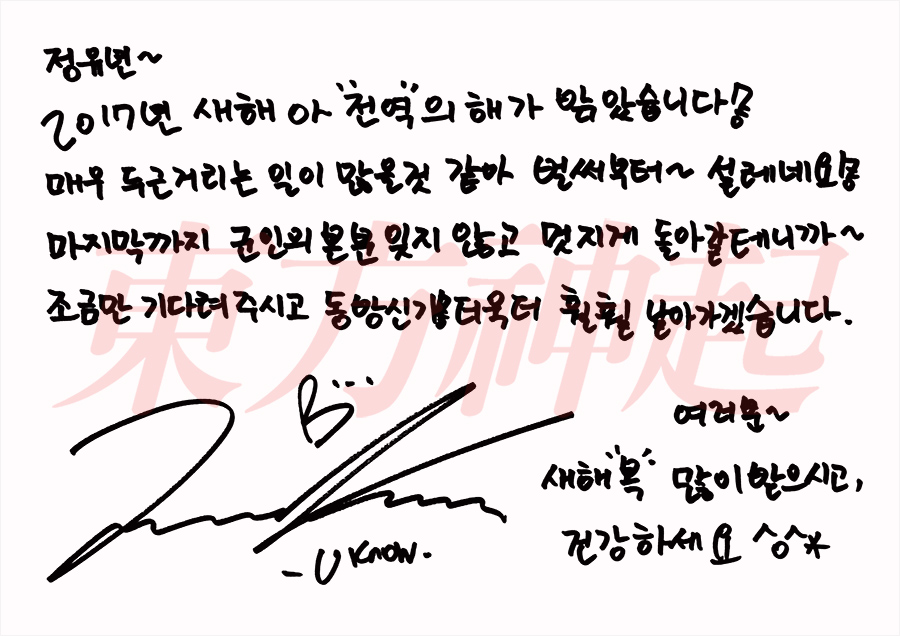 정유년~
2017년 새해 아 "전역"의 해가 밝았습니다!
매우 두근거리는 일이 많을것 같아 벌써부터~ 설레네요!
마지막까지 군인의 본분 잊지 않고 멋지게 돌아갈테니까~
조금만 기다려주시고 동방신기 더욱더 훨훨 날아가겠습니다.
東方神起
B...
- U KNOW.
여러분~
새해 "복" 많이 받으시고,
건강하세요 ^o^*